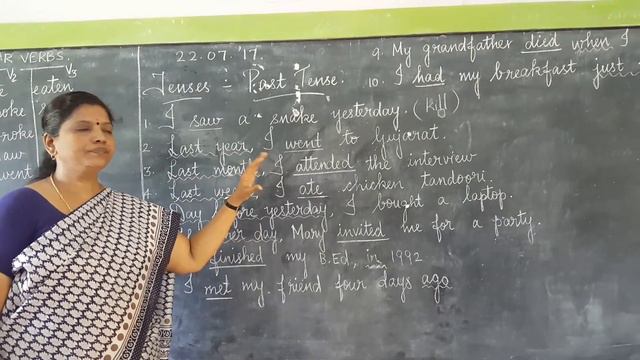 VERBS.
V2 V3
eaten
22.07.'17
Tenses :- Past Tense:
1. I saw a snake yesterday. (kill)
2. Last year, I went to Gujarat.
3. Last month, I attended the interview
4. Last week, I ate chicken Tandoori.
Day before yesterday, I bought a laptop.
day, Mary invited me for a party.
finished my B.Ed, in 1992
I met my friend four days ago
9. My grandfather died when I
10. I had my breakfast just